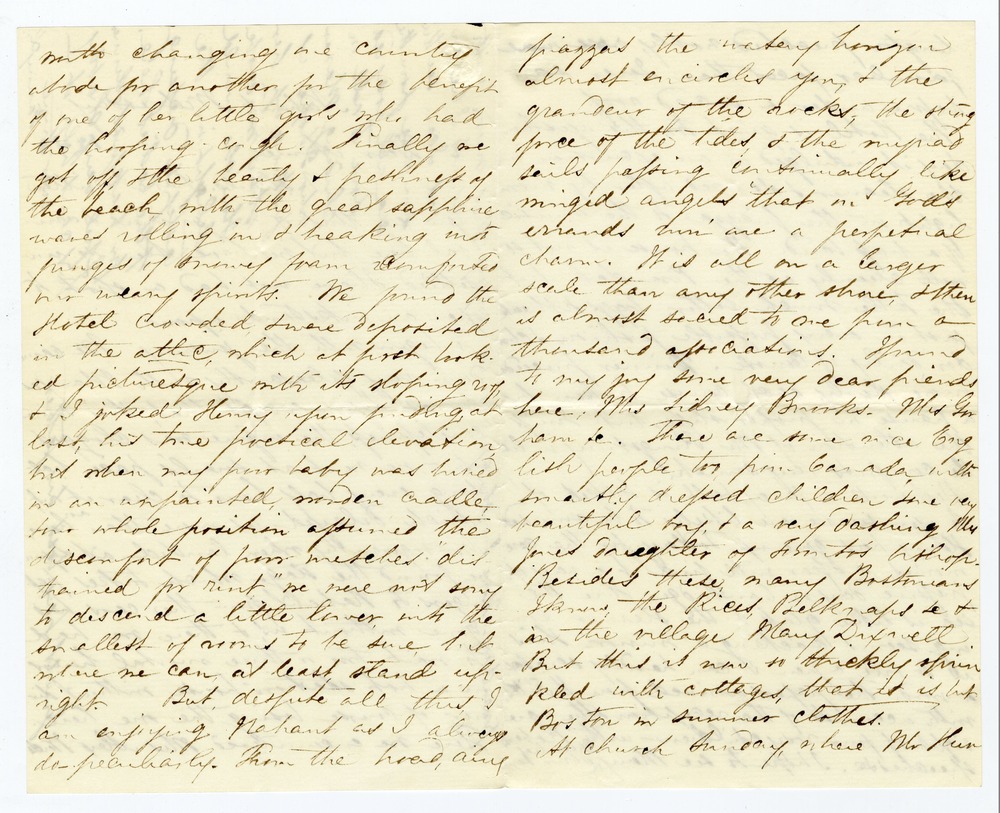 with changing one country
abode for another for the benefit
of one of her little girls who had
the hooping-cough. Finally we
got off, & the beauty & freshness of
the beach with the great sapphire
waves rolling in & breaking into
fringes of snowy foam comforted
our weary spirits. We found the
Hotel crowded, & were deposited
in the attic, which at first look-
ed picturesque with its sloping roof,
& I joked Henry upon finding, at
last, his true poetical elevation,
but when my poor baby was buried
in an unpainted, wooden cradle,
& our whole position assumed the
discomfort of poor wretches "dis
trained for rint" we were not sorry
to descend a little lower into the
smallest of rooms to be sure but
where we can, at least, stand up-
right. But, despite all this I
am enjoying Nahant as I always
do peculiarly. From the broad, airy
piazzas the watery horizon
almost encircles you, & the
grandeur of the rocks, the strong
force of the tides, & the myriad
sails passing continually like
winged angels "that on God's
errands run" are a perpetual
charm. It is all on a larger
scale than any other shore, & then
is almost sacred to me from a
thousand associations. I found
to my joy some very dear friends
here, Mrs Sidney Brooks. Mrs Gor
ham &c. There are some nice Eng
lish people too from Canada, with
smartly dressed children some very
beautiful boys, & a very dashing Mrs
Jones daughter of Toronto's bishop.
Besides these, many Bostonians
I know, the Rices, Belknaps &c &
in the village Mary Dixwell
But this is now so thickly sprin
kled with cottages, that it is but
Boston in summer clothes.
At church Sunday, where Mr Hun